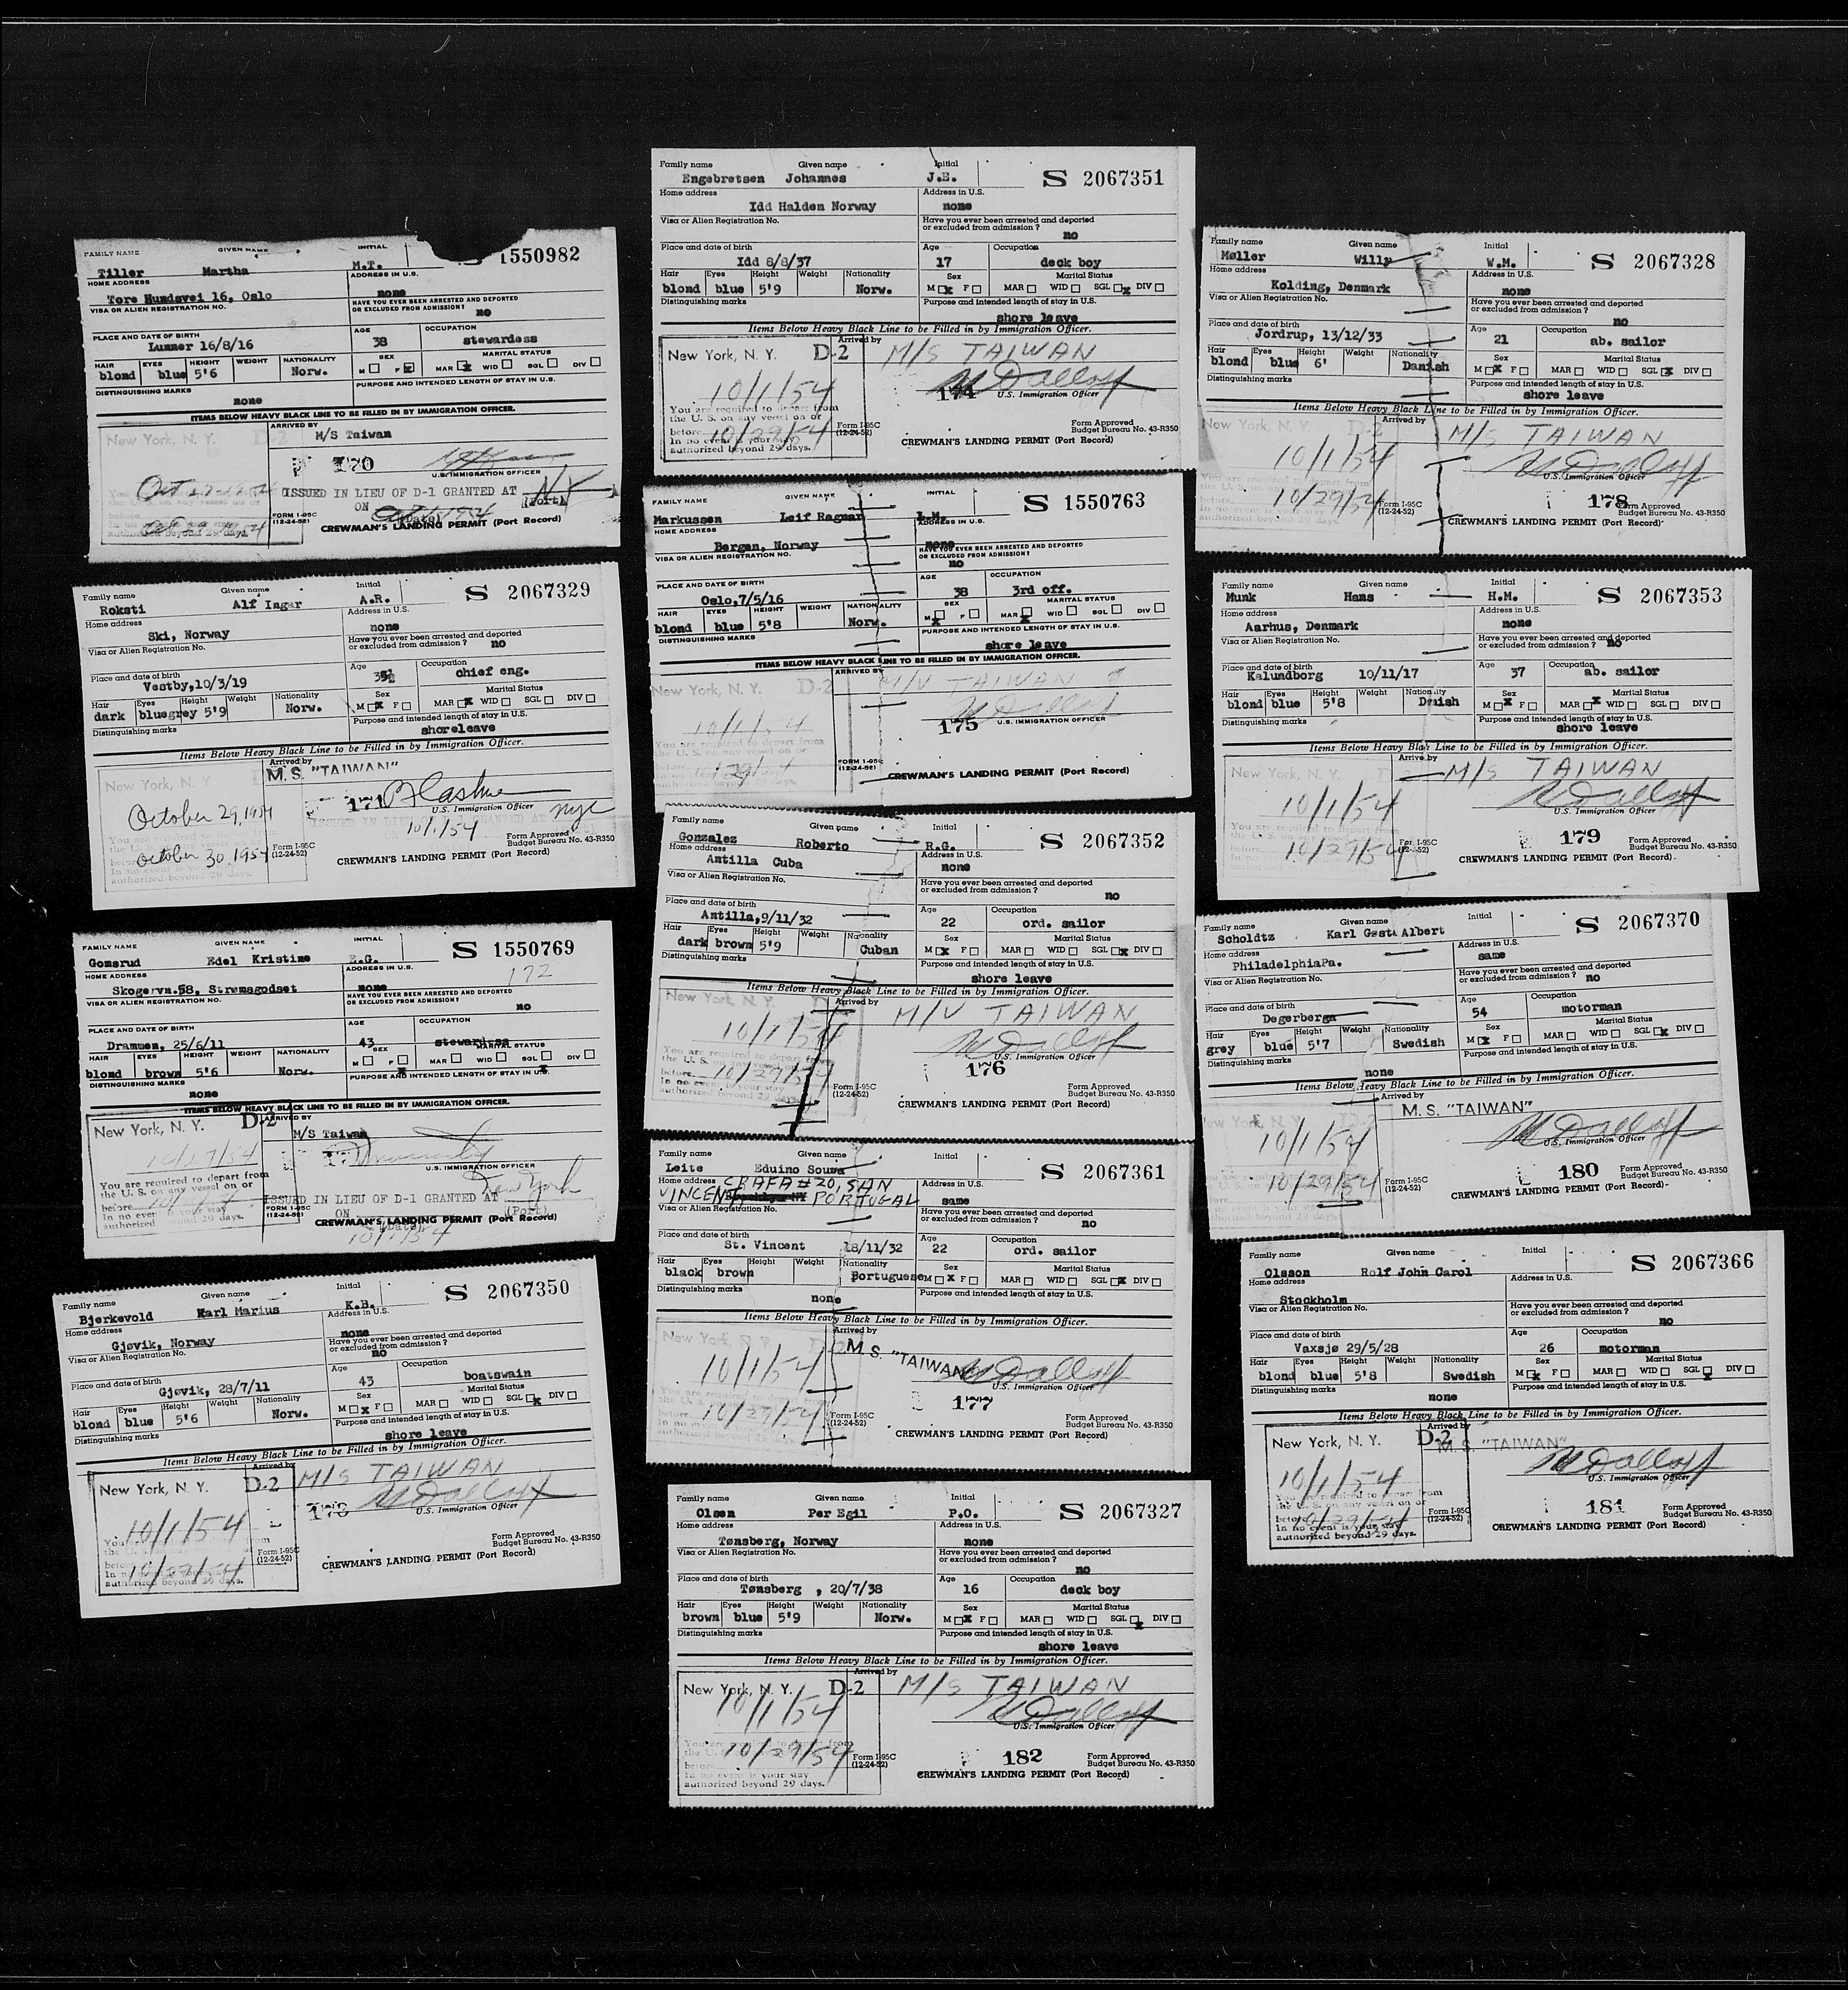 FAMILY NAME GIVEN NAME INITIAL S 1550982
Tiller Martha M.T.
HOME ADDRESS ADDRESS IN U.S.
Tore Hundsvei 16, Oslo none
VISA OR ALIEN REGISTRATION NO. HAVE YOU EVER BEEN ARRESTED AND DEPORTED
OR EXCLUDED FROM ADMISSION? no
PLACE AND DATE OF BIRTH AGE OCCUPATION
Lunner 16/8/16 38 stewardess
HAIR EYES HEIGHT WEIGHT NATIONALITY SEX MARITAL STATUS
blond blue 5'6 Norw. M F x MAR x WID SGL DIV
DISTINGUISHING MARKS PURPOSE AND INTENDED LENGTH OF STAY IN U.S.
none
ITEMS BELOW HEAVY BLACK LINE TO BE FILLED IN BY IMMIGRATION OFFICER.
New York, N. Y. D-2 ARRIVED BY
M/S Taiwan
170
U.S. IMMIGRATION OFFICER
ISSUED IN LIEU OF D-1 GRANTED AT NY
ON (Date) (Port)
FORM I-95C
(12-24-52) CREWMAN'S LANDING PERMIT (Port Record)
authorized beyond 29 days
Family name Given name Initial S 2067329
Roksti Alf Ingar A.R.
Home address Address in U.S.
Ski, Norway none
Visa or Alien Registration No. Have you ever been arrested and deported
or excluded from admission? no
Place and date of birth Age Occupation
Vestby,10/3/19 chief eng.
Hair Eyes Height Weight Nationality Sex Marital Status
dark bluegrey 5'9 Norw. M x F MAR x WID SGL DIV
Distinguishing marks Purpose and intended length of stay in U.S.
shoreleave
Items Below Heavy Black Line to be Filled in by Immigration Officer.
New York, N. Y. Arrived by
M.S. "TAIWAN"
October 29, 1954 171
U.S. Immigration Officer nyc
ISSUED IN LIEU OF D-1 GRANTED AT
10/1/54
October 30, 1954 Form I-95C
(12-24-52) Form Approved
Budget Bureau No. 43-R350
In no event is your stay
authorized beyond 29 days. CREWMAN'S LANDING PERMIT (Port Record)
FAMILY NAME GIVEN NAME INITIAL S 1550769
Gomsrud Edel Kristine E.G. 172
HOME ADDRESS ADDRESS IN U.S.
Skogervn.58, Strømsgodset none
VISA OR ALIEN REGISTRATION NO. HAVE YOU EVER BEEN ARRESTED AND DEPORTED
OR EXCLUDED FROM ADMISSION? no
PLACE AND DATE OF BIRTH AGE OCCUPATION
Drammen, 25/6/11 43 stewardess
HAIR EYES HEIGHT WEIGHT NATIONALITY SEX MARITAL STATUS
blond brown 5'6 Norw. M F x MAR WID SGL x DIV
DISTINGUISHING MARKS PURPOSE AND INTENDED LENGTH OF STAY IN U.S.
none
ITEMS BELOW HEAVY BLACK LINE TO BE FILLED IN BY IMMIGRATION OFFICER.
New York, N. Y. D-2 ARRIVED BY
M/S Taiwan
You are required to depart from
the U. S. on any vessel on or
before U.S. IMMIGRATION OFFICER
In no event is your stay
authorized beyond 29 days.
ISSUED IN LIEU OF D-1 GRANTED AT New York
ON (Date) (Port)
FORM I-95C
(12-24-52) CREWMAN'S LANDING PERMIT (Port Record)
Family name Given name Initial S 2067350
Bjerkevold Karl Marius K.B.
Home address Address in U.S.
Gjøvik, Norway none
Visa or Alien Registration No. Have you ever been arrested and deported
or excluded from admission?
no
Place and date of birth Age Occupation
Gjøvik, 28/7/11 43 boatswain
Hair Eyes Height Weight Nationality Sex Marital Status
blond blue 5'6 Norw. M x F MAR WID SGL x DIV
Distinguishing marks Purpose and intended length of stay in U.S.
shore leave
Items Below Heavy Black Line to be Filled in by Immigration Officer.
New York, N. Y. D-2 Arrived by
M/S TAIWAN
10/1/54
U.S. Immigration Officer
10/29/54 Form I-95C
(12-24-52) Form Approved
Budget Bureau No. 43-R350
authorized beyond 29 days. CREWMAN'S LANDING PERMIT (Port Record)
Family name Given name Initial S 2067351
Engebretsen Johannes J.E.
Home address Address in U.S.
Idd Halden Norway none
Visa or Alien Registration No. Have you ever been arrested and deported
or excluded from admission?
no
Place and date of birth Age Occupation
Idd 8/8/37 17 deck boy
Hair Eyes Height Weight Nationality Sex Marital Status
blond blue 5'9 Norw. M x F MAR WID SGL x DIV
Distinguishing marks Purpose and intended length of stay in U.S.
shore leave
Items Below Heavy Black Line to be Filled in by Immigration Officer.
New York, N. Y. D-2 Arrived by
M/S TAIWAN
10/1/54 174
U.S. Immigration Officer
You are required to depart from
the U. S. on any vessel on or
before 10/29/54 Form I-95C
(12-24-52) Form Approved
Budget Bureau No. 43-R350
In no event is your stay
authorized beyond 29 days. CREWMAN'S LANDING PERMIT (Port Record)
FAMILY NAME GIVEN NAME INITIAL S 1550763
Markussen Leif Ragnar L.M.
HOME ADDRESS ADDRESS IN U.S.
Bergen, Norway none
VISA OR ALIEN REGISTRATION NO. HAVE YOU EVER BEEN ARRESTED AND DEPORTED
OR EXCLUDED FROM ADMISSION?
no
PLACE AND DATE OF BIRTH AGE OCCUPATION
Oslo,7/5/16 38 3rd off.
HAIR EYES HEIGHT WEIGHT NATIONALITY SEX MARITAL STATUS
blond blue 5'8 Norw. M x F MAR x WID SGL DIV
DISTINGUISHING MARKS PURPOSE AND INTENDED LENGTH OF STAY IN U.S.
shore leave
ITEMS BELOW HEAVY BLACK LINE TO BE FILLED IN BY IMMIGRATION OFFICER.
New York, N. Y. D-2 ARRIVED BY
M/V TAIWAN
10/1/54 175 U.S. IMMIGRATION OFFICER
You are required to depart from
the U. S. on any vessel on or
FORM I-95C
(12-24-52) CREWMAN'S LANDING PERMIT (Port Record)
Family name Given name Initial S 2067352
Gonzalez Roberto R.G.
Home address Address in U.S.
Antilla Cuba none
Visa or Alien Registration No. Have you ever been arrested and deported
or excluded from admission?
no
Place and date of birth Age Occupation
Antilla,9/11/32 22 ord. sailor
Hair Eyes Height Weight Nationality Sex Marital Status
dark brown 5'9 Cuban M x F MAR WID SGL x DIV
Distinguishing marks Purpose and intended length of stay in U.S.
shore leave
Items Below Heavy Black Line to be Filled in by Immigration Officer.
New York, N. Y. Arrived by
M/V TAIWAN
10/1/54
U.S. Immigration Officer
176
before 10/29/54 Form I-95C
(12-24-52) Form Approved
Budget Bureau No. 43-R350
In no event is your stay
authorized beyond 29 days. CREWMAN'S LANDING PERMIT (Port Record)
Family name Given name Initial S 2067361
Leite Eduino Souza
Home address CRAFA #20, SAN Address in U.S.
VINCENT PORTUGAL same
Visa or Alien Registration No. Have you ever been arrested and deported
or excluded from admission?
no
Place and date of birth Age Occupation
St. Vincent 18/11/32 22 ord. sailor
Hair Eyes Height Weight Nationality Sex Marital Status
black brown Portuguese M x F MAR WID SGL x DIV
Distinguishing marks Purpose and intended length of stay in U.S.
none
Items Below Heavy Black Line to be Filled in by Immigration Officer.
New York Arrived by
M.S. "TAIWAN"
10/1/54
U.S. Immigration Officer
177
10/29/54 Form I-95C
(12-24-52) Form Approved
Budget Bureau No. 43-R350
CREWMAN'S LANDING PERMIT (Port Record)
Family name Given name Initial S 2067327
Olsen Per Egil P.O.
Home address Address in U.S.
Tønsberg, Norway none
Visa or Alien Registration No. Have you ever been arrested and deported
or excluded from admission?
no
Place and date of birth Age Occupation
Tønsberg , 20/7/38 16 deck boy
Hair Eyes Height Weight Nationality Sex Marital Status
brown blue 5'9 Norw. M x F MAR WID SGL x DIV
Distinguishing marks Purpose and intended length of stay in U.S.
shore leave
Items Below Heavy Black Line to be Filled in by Immigration Officer.
New York, N. Y. D-2 Arrived by
M/S TAIWAN
10/1/54
U.S. Immigration Officer
10/29/54 Form I-95C
(12-24-52) 182 Form Approved
Budget Bureau No. 43-R350
In no event is your stay
authorized beyond 29 days. CREWMAN'S LANDING PERMIT (Port Record)
Family name Given name Initial S 2067328
Møller Willy W.M.
Home address Address in U.S.
Kolding, Denmark none
Visa or Alien Registration No. Have you ever been arrested and deported
or excluded from admission?
no
Place and date of birth Age Occupation
Jordrup, 13/12/33 21 ab. sailor
Hair Eyes Height Weight Nationality Sex Marital Status
blond blue 6' Danish M x F MAR WID SGL x DIV
Distinguishing marks Purpose and intended length of stay in U.S.
shore leave
Items Below Heavy Black Line to be Filled in by Immigration Officer.
New York, N. Y. D-2 Arrived by
M/S TAIWAN
10/1/54
U.S. Immigration Officer
10/29/54 Form I-95C
(12-24-52) 178 Form Approved
Budget Bureau No. 43-R350
CREWMAN'S LANDING PERMIT (Port Record)
Family name Given name Initial S 2067353
Munk Hans H.M.
Home address Address in U.S.
Aarhus, Denmark none
Visa or Alien Registration No. Have you ever been arrested and deported
or excluded from admission? no
Place and date of birth Age Occupation
Kalundborg 10/11/17 37 ab. sailor
Hair Eyes Height Weight Nationality Sex Marital Status
blond blue 5'8 M x F MAR x WID SGL DIV
Distinguishing marks Purpose and intended length of stay in U.S.
shore leave
Items Below Heavy Black Line to be Filled in by Immigration Officer.
New York, N. Arrived by
M/S TAIWAN
10/1/54
U.S. Immigration Officer
179
10/29/54 Form Approved
Budget Bureau No. 43-R350
CREWMAN'S LANDING PERMIT (Port Record)
Family name Given name Initial S 2067370
Scholdtz Karl Gøsta Albert
Home address Address in U.S.
PhiladelphiaPa. same
Visa or Alien Registration No. Have you ever been arrested and deported
or excluded from admission? no
Place and date of birth Age Occupation
Degerberga 54 motorman
Hair Eyes Height Weight Nationality Sex Marital Status
grey blue 5'7 Swedish M x F MAR WID SGL x DIV
Distinguishing marks Purpose and intended length of stay in U.S.
none
Items Below Heavy Black Line to be Filled in by Immigration Officer.
D-2 Arrived by
M.S. "TAIWAN"
10/1/54
U.S. Immigration Officer
180
10/29/54 Form I-95C
(12-24-52) Form Approved
Budget Bureau No. 43-R350
CREWMAN'S LANDING PERMIT (Port Record)
Family name Given name Initial S 2067366
Olsson Rolf John Carol
Home address Address in U.S.
Stockholm
Visa or Alien Registration No. Have you ever been arrested and deported
or excluded from admission?
no
Place and date of birth Age Occupation
Vaxsjø 29/5/28 26 motorman
Hair Eyes Height Weight Nationality Sex Marital Status
blond blue 5'8 Swedish M x F MAR WID SGL x DIV
Distinguishing marks Purpose and intended length of stay in U.S.
none
Items Below Heavy Black Line to be Filled in by Immigration Officer.
New York, N. Y. D-2 Arrived by
M.S. "TAIWAN"
10/1/54
U.S. Immigration Officer
181
before 10/29/54 Form I-95C
(12-24-52) Form Approved
Budget Bureau No. 43-R350
In no event is your stay
authorized beyond 29 days. CREWMAN'S LANDING PERMIT (Port Record)